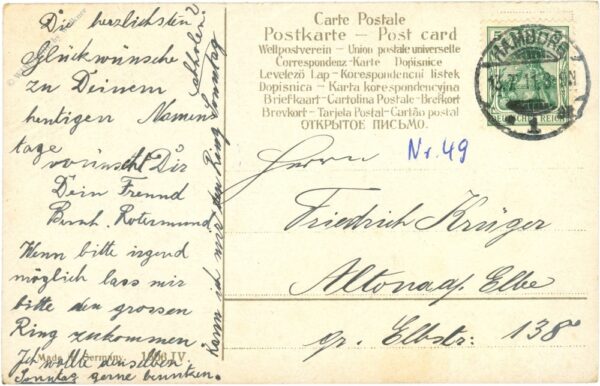 Die herzlichsten
Glückwünsche
zu Deinem
heutigen Namen-
tage
wünscht Dir
Dein Freund
Bernh. Rotermund
Wenn bitte irgend
möglich lass mir
bitte den grossen
Ring zukommen
Ich wollte denselben
Sonntag gerne benutzen.
Kann ich mir den Ring Sonntag
abholen?
Made in Germany. 1906 IV.
Carte Postale
Postkarte – Post card
Weltpostverein – Union postale universelle
Correspondenz-Karte Dopisnice
Levelező Lap – Korespondencni listek
Dopisnica – Karta korespondencyjna
Briefkaart – Cartolina Postale – Brefkort
Brevkort – Tarjeta Postal – Cartão postal
ОТКРЫТОЕ ПИСЬМО.
5
HAMBURG
1
DEUTSCHES REICH
Nr. 49
Herrn
Friedrich Krüger
Altona a/ Elbe
gr. Elbstr. 138